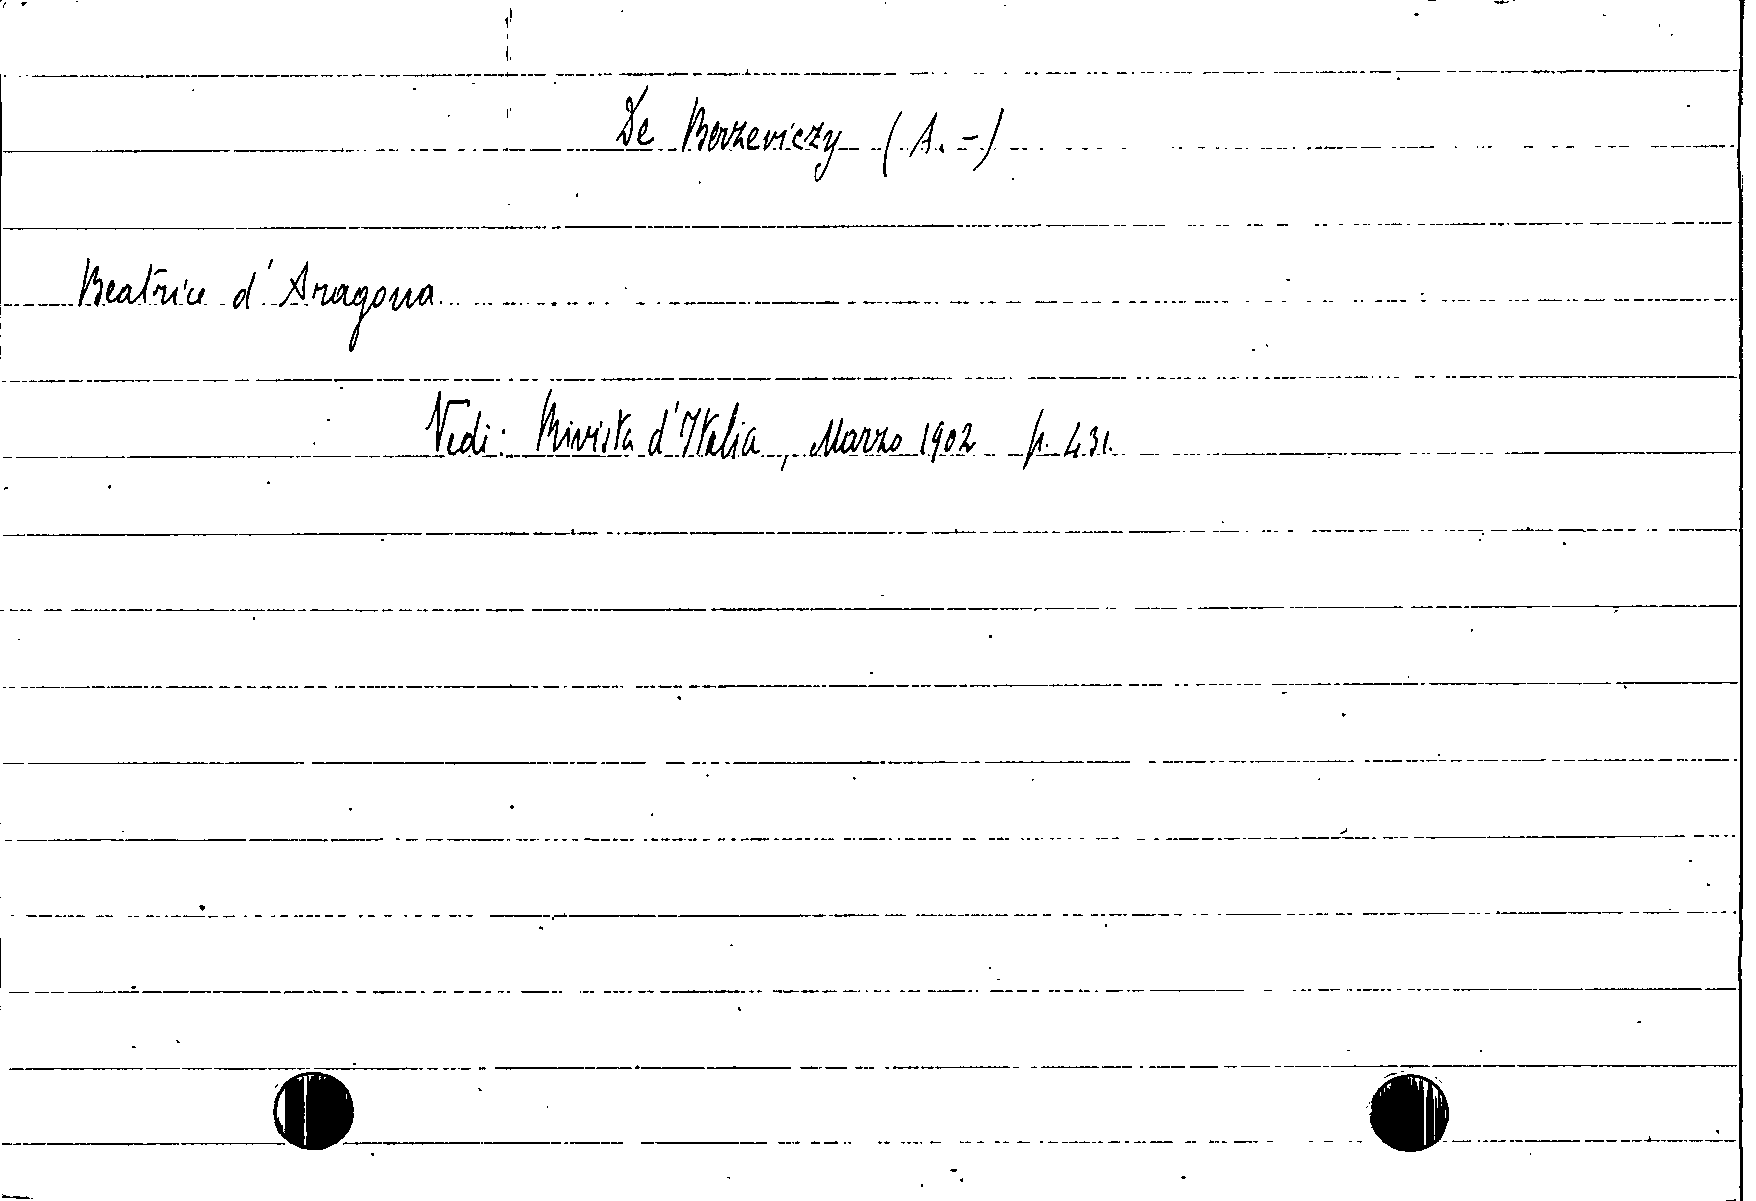 De Berzeviczy (A. -)
Beatrice d'Aragona
Vedi: Rivista d'Italia, Marzo 1902 p. 431.